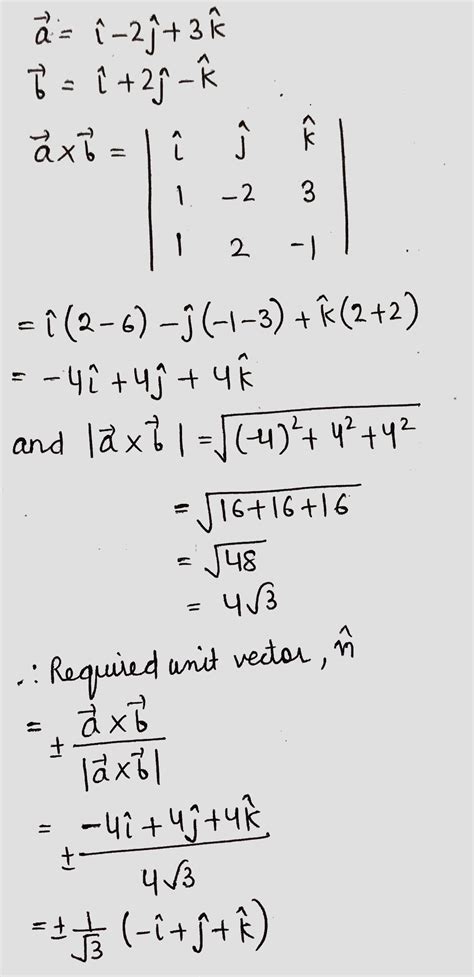 a⃗ = î-2ĵ+3k̂
b⃗ = î+2ĵ-k̂
a⃗×b⃗ = | î ĵ k̂ |
| 1 -2 3 |
| 1 2 -1 |
= î(2-6) -ĵ(-1-3) + k̂(2+2)
= -4î +4ĵ + 4k̂
and |a⃗×b⃗| = √((-4)²+ 4²+4²)
= √(16+16+16)
= √48
= 4√3
∴ Required unit vector, n̂
= ± a⃗×b⃗ / |a⃗×b⃗|
= ± -4î+4ĵ+4k̂ / 4√3
= ± 1/√3 (-î+ĵ+k̂)